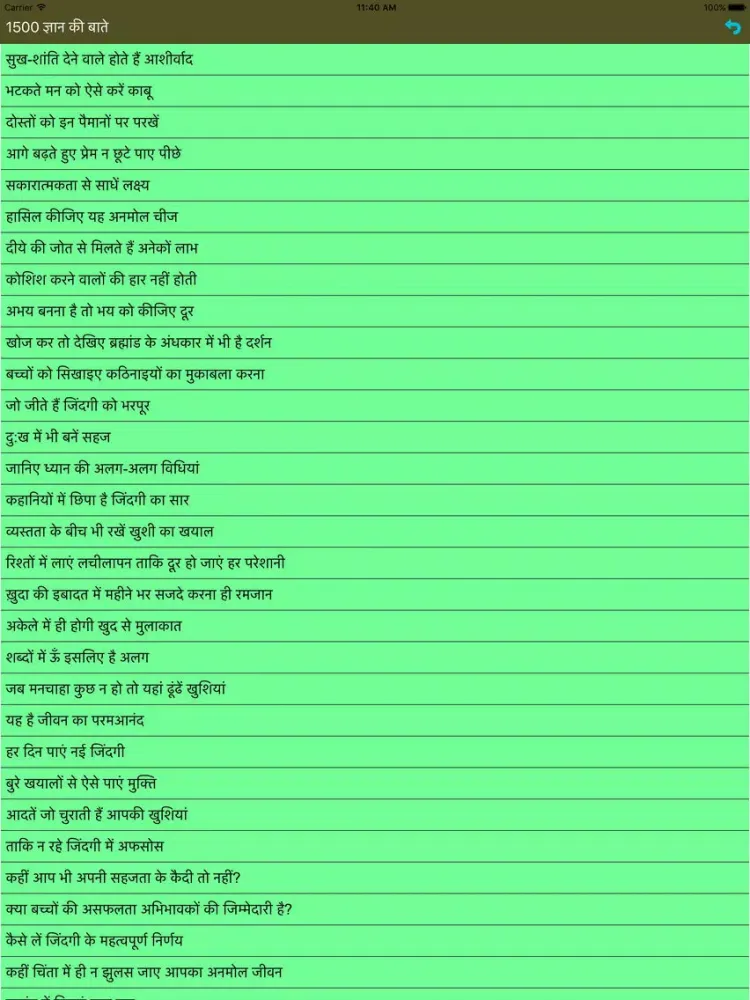 Carrier
11:40 AM
100%
1500 ज्ञान की बाते
सुख-शांति देने वाले होते हैं आशीर्वाद
भटकते मन को ऐसे करें काबू
दोस्तों को इन पैमानों पर परखें
आगे बढ़ते हुए प्रेम न छूटे पाए पीछे
सकारात्मकता से साधें लक्ष्य
हासिल कीजिए यह अनमोल चीज
दीये की जोत से मिलते हैं अनेकों लाभ
कोशिश करने वालों की हार नहीं होती
अभय बनना है तो भय को कीजिए दूर
खोज कर तो देखिए ब्रह्मांड के अंधकार में भी है दर्शन
बच्चों को सिखाइए कठिनाइयों का मुकाबला करना
जो जीते हैं जिंदगी को भरपूर
दु:ख में भी बनें सहज
जानिए ध्यान की अलग-अलग विधियां
कहानियों में छिपा है जिंदगी का सार
व्यस्तता के बीच भी रखें खुशी का खयाल
रिश्तों में लाएं लचीलापन ताकि दूर हो जाएं हर परेशानी
ख़ुदा की इबादत में महीने भर सजदे करना ही रमजान
अकेले में ही होगी खुद से मुलाकात
शब्दों में ऊँ इसलिए है अलग
जब मनचाहा कुछ न हो तो यहां ढूंढें खुशियां
यह है जीवन का परमआनंद
हर दिन पाएं नई जिंदगी
बुरे खयालों से ऐसे पाएं मुक्ति
आदतें जो चुराती हैं आपकी खुशियां
ताकि न रहे जिंदगी में अफसोस
कहीं आप भी अपनी सहजता के कैदी तो नहीं?
क्या बच्चों की असफलता अभिभावकों की जिम्मेदारी है?
कैसे लें जिंदगी के महत्वपूर्ण निर्णय
कहीं चिंता में ही न झुलस जाए आपका अनमोल जीवन